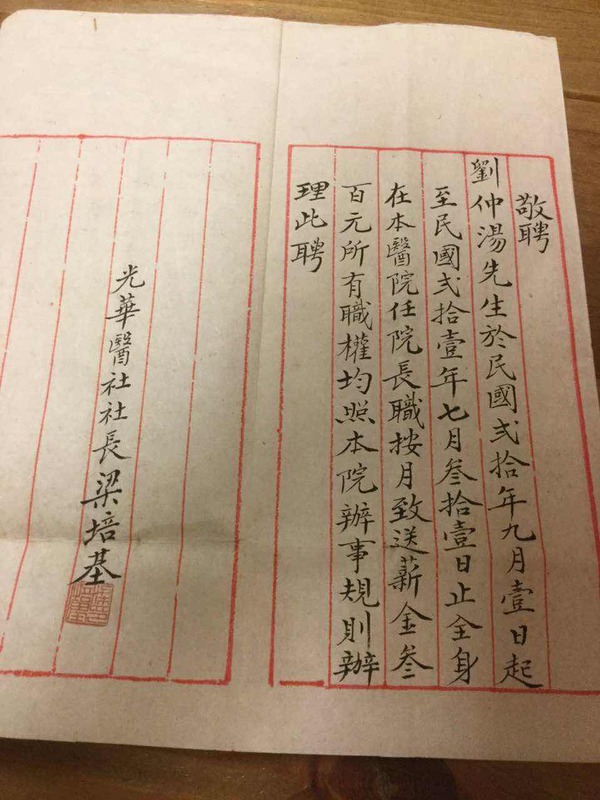 敬聘
劉仲湯先生於民國弍拾年九月壹日起
至民國弍拾壹年七月叁拾壹日止全身
在本醫院任院長職按月致送薪金叁
百元所有職權均照本院辦事規則辦
理此聘
光華醫社社長梁培基